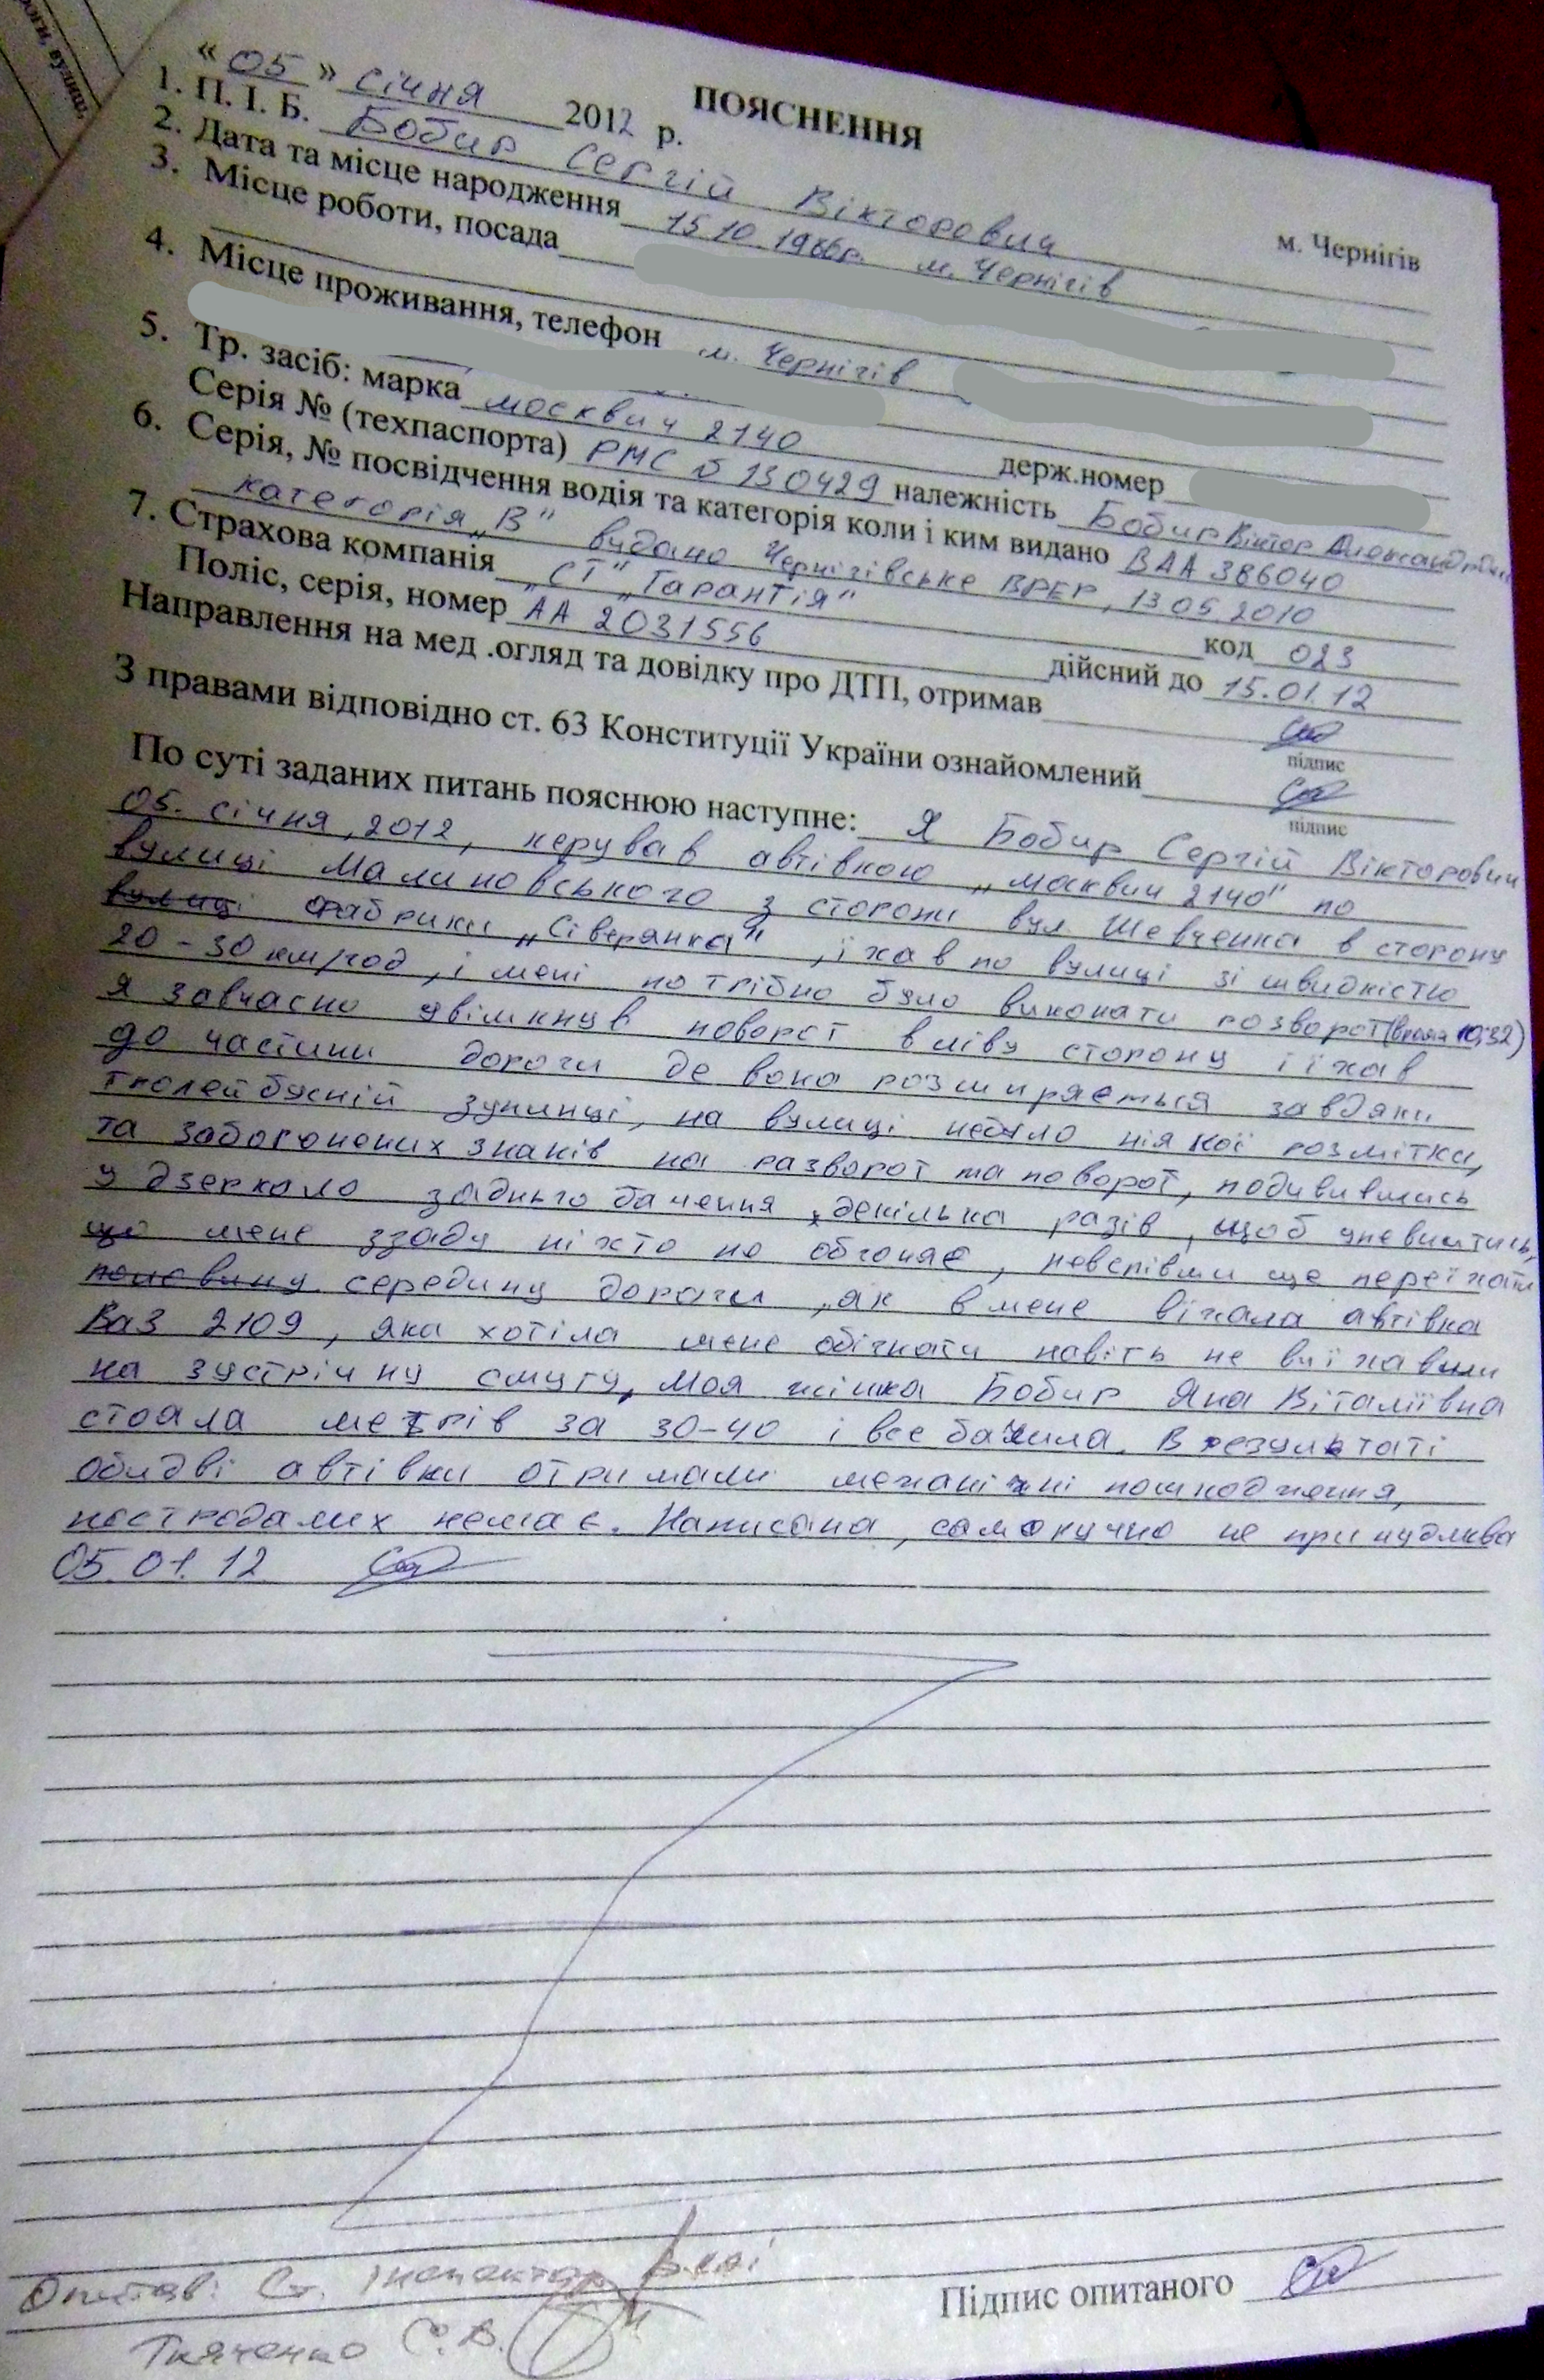 роги, вулиці,
ПОЯСНЕННЯ
« 05 » січня 2012 р.
м. Чернігів
1. П. І. Б. Бобир Сергій Вікторович
2. Дата та місце народження 15.10.1986р. м. Чернігів
3. Місце роботи, посада
4. Місце проживання, телефон м. Чернігів
5. Тр. засіб: марка москвич 2140 держ.номер
Серія № (техпаспорта) РМС № 130429 належність Бобир Віктор
6. Серія, № посвідчення водія та категорія коли і ким видано ВАА 386040
категорія „В" видано Чернігівське ВРЕР, 13.05.2010
7. Страхова компанія „СТ" „Гарантія" код 023
Поліс, серія, номер АА 2031556 дійсний до 15.01.12
Направлення на мед .огляд та довідку про ДТП, отримав
підпис
З правами відповідно ст. 63 Конституції України ознайомлений
підпис
По суті заданих питань пояснюю наступне: Я Бобир Сергій Вікторович
05. січня, 2012, керував автівкою „москвич 2140" по
вулиці Малиновського з сторони вул. Шевченка в сторону
вулиці фабрики „Сіверянка", їхав по вулиці зі швидкістю
20-30 км/год, і мені потрібно було виконати розворот (время 10:32)
я завчасно увімкнув поворот в ліву сторону і їхав
до частини дороги де вона розширяється завдяки
тролейбусній зупинці, на вулиці небуло ніякої розмітки,
та заборонених знаків на разворот та поворот, подивившись
у дзеркало заднього бачення декілька разів, щоб упевнитись,
що мене ззаду ніхто не обгоняє, невспівши ще переїхати
половину середину дороги, як в мене вїхала автівка
Ваз 2109, яка хотіла мене обігнати навіть не виїхавши
на зустрічну смугу, Моя жінка Бобир Яна Віталіївна
стояла метрів за 30-40 і все бачила. В результаті
обидві автівки отримали механічні пошкодження,
постродалих немає. Написана, саморучно не принудліва
05.01.12
Опитав: Ст. інспектор
Ткаченко С.В.
Підпис опитаного